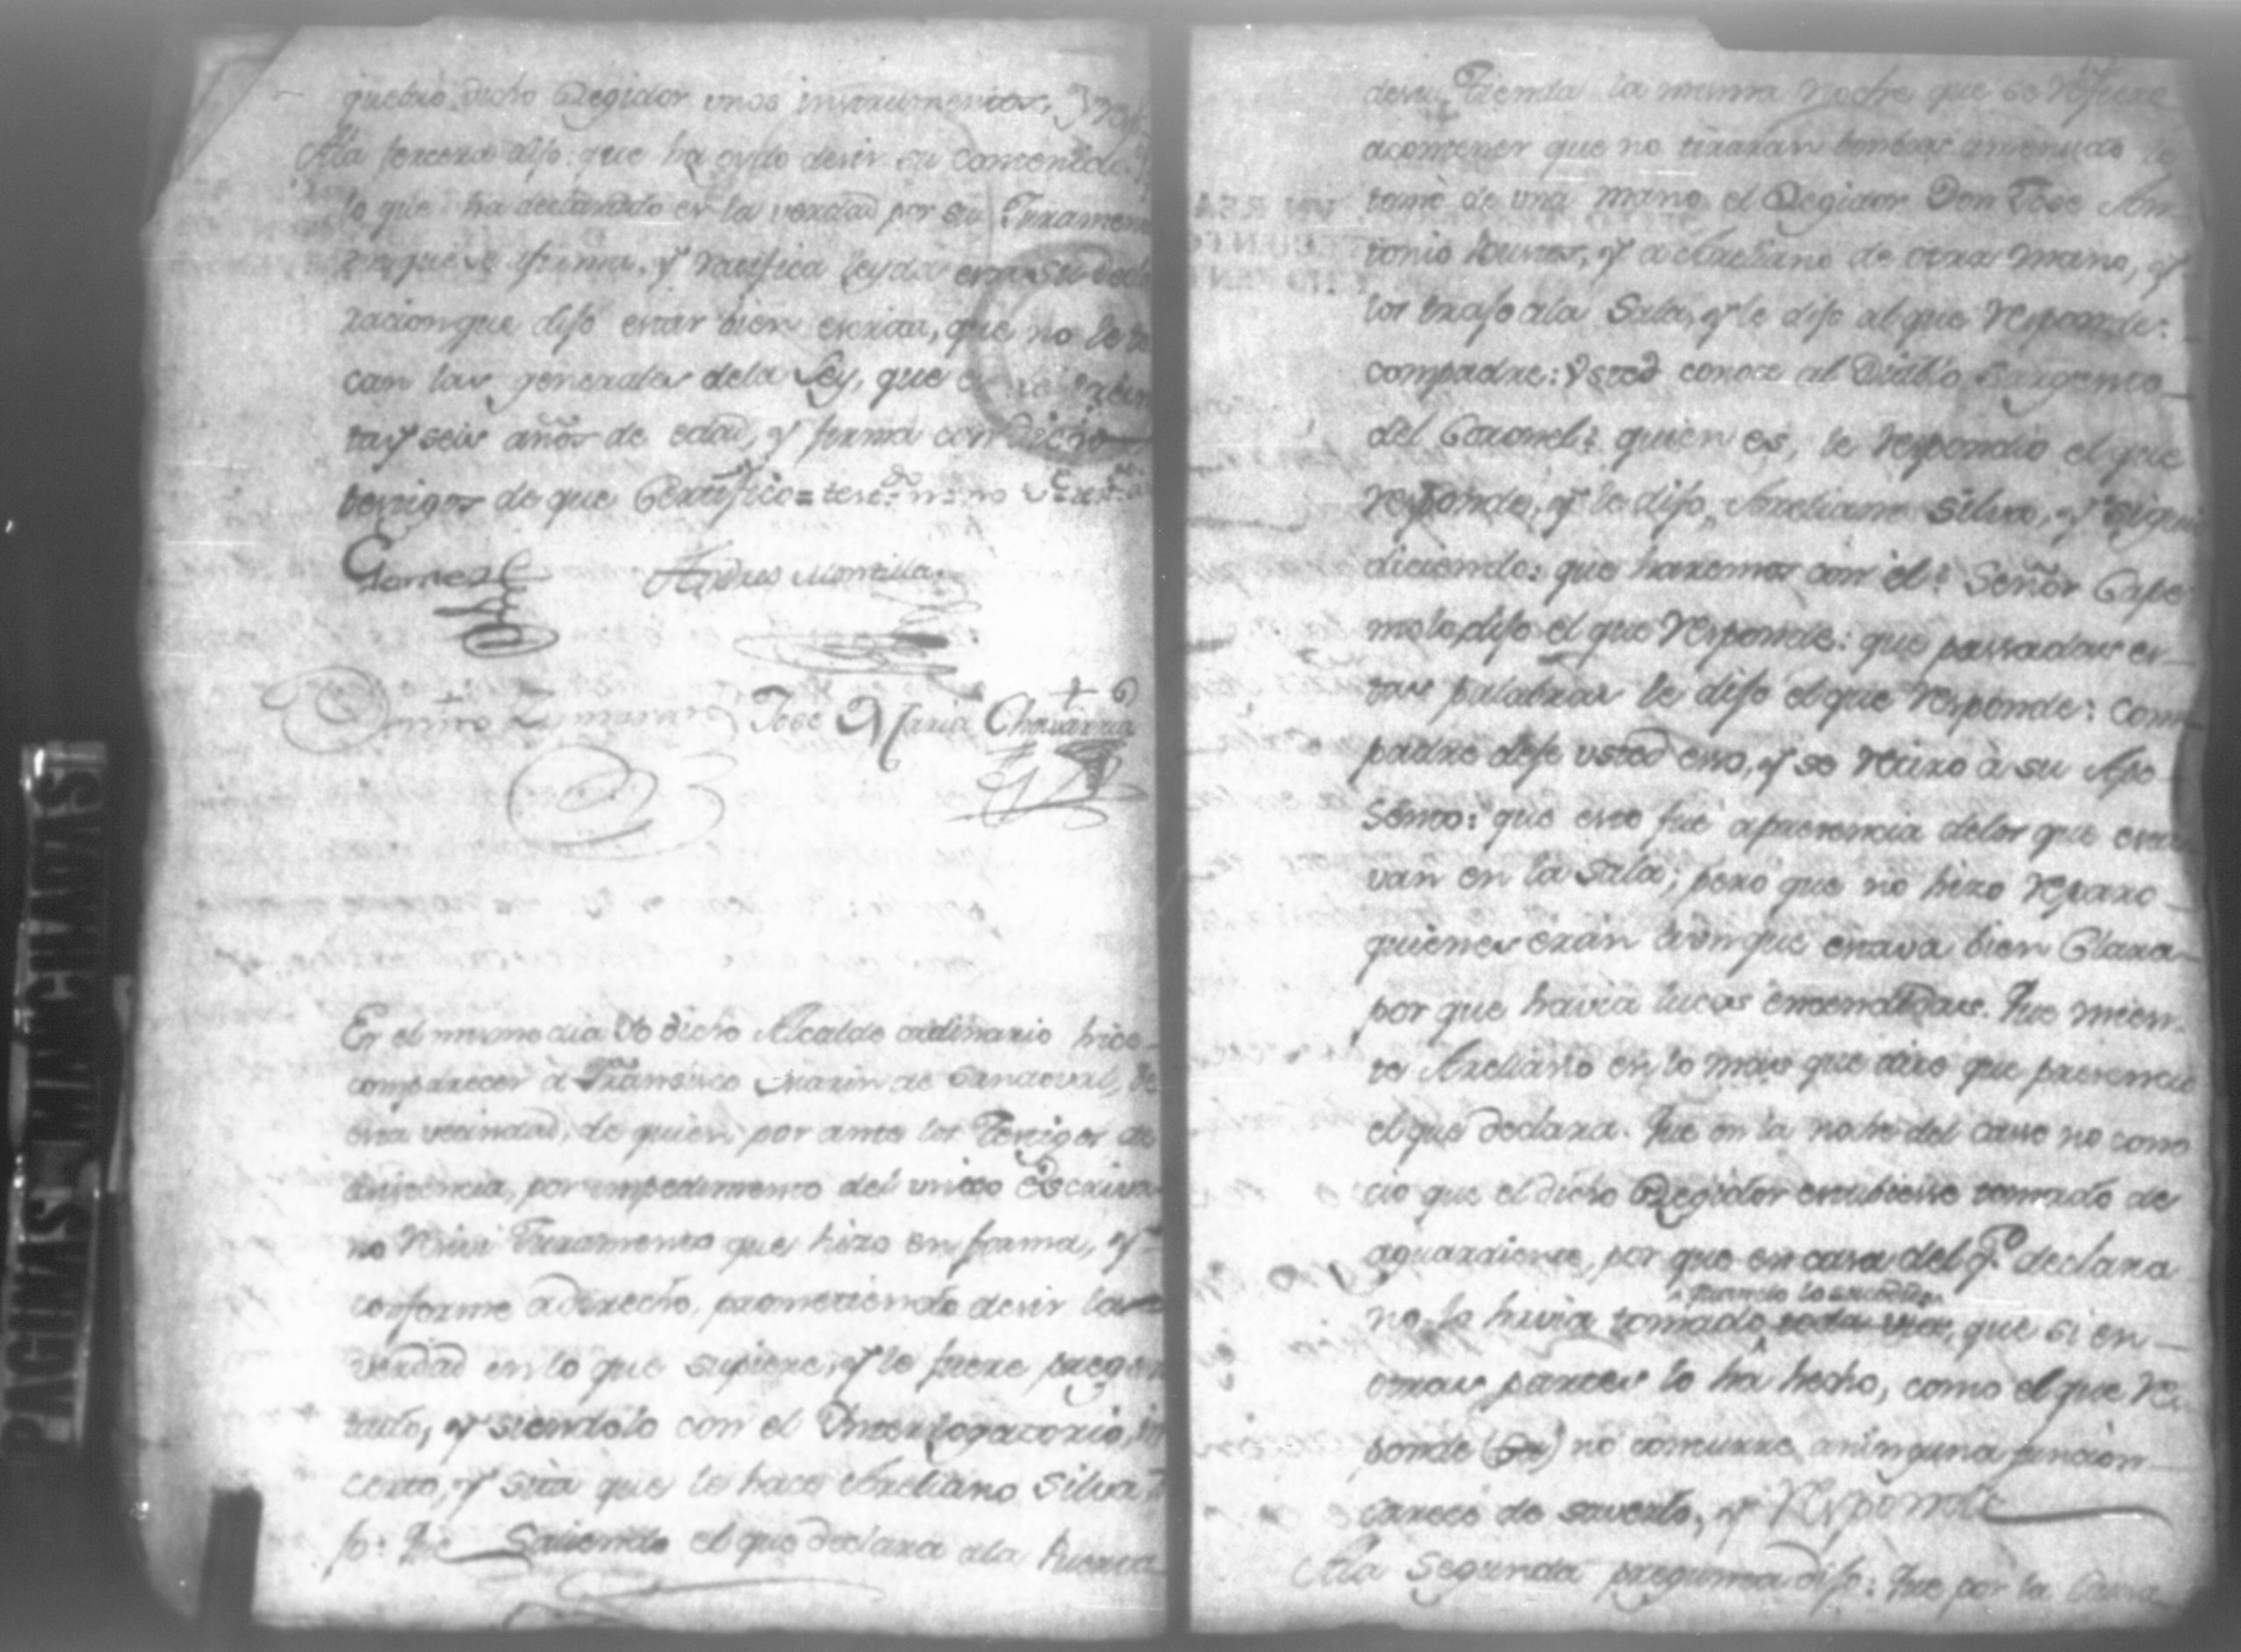 quebró dicho Regidor unos instrumentos, y resp.
A la tercera dijo que ha oydo desir su contenido: q.
lo que ha declarado es la verdad por su Juramen
en que se afirma, y ratifica leyda esta su decla
racion que dijo estar bien escrita, que no le to
can las generales dela Ley, que es de
tay seis años de edad, y firma con dichos
testigos de que Certifico =
Gomez Andres Montilla
Domingo Zumarra Jose Maria Chavarria
En el mismo dia Yo dicho Alcalde ordinario hice
comparecer â Fransisco Marin de Sandoval, de
esta vecindad, de quien, por ante los Testigos de
asistencia, por impedimento del unico Escriva
no Reciví Juramento que hizo en forma, y
conforme â derecho, prometiendo desir la
verdad en lo que supiere, y le fuere pregun
tado, y siendolo con el Ynterrogatorio, in
certo, y sita que le hace Areliano Silva, di
jo: Que Saliendo el que declara ala Puerta
desu Tienda la misma noche que se refiere
acontener que no tiraran bombas amenudo le
tomó de una mano el Regidor Don Jose An
tonio y a Areliano de otra mano, y
los trajo ala Sala, y le dijo al que responde:
compadre: Vsted conoce al Diablo Sargento
del Coronel? quien es, le respondió el que
responde, y le dijo, Areliano Silva, y siguio
diciendo: que haremos con él? Señor Cape
molo, dijo el que responde: que passadas es
tas palabras le dijo el que responde: com
padre deje usted eso, y se retiro â su Apo
sento: que esto fue apresencia delos que esta
van en la Sala; pero que no hizo reparo
quienes eran aunque estava bien Clara
por que havia luces encendidas. Que mien
te Areliano en lo mas que dize que presencio
el que declara. Que en la noche del caso no cono
cio que el dicho Regidor estubiese tomado de
aguardiente, por que en casa del q.e declara
no lo havia tomado, que si en
otras partes lo ha hecho, como el que res
ponde no concurre aninguna funcion
carece de saverlo, y Responde
A la Segunda pregunta dijo: Que por la Causa
PAGINAS MANCHADAS